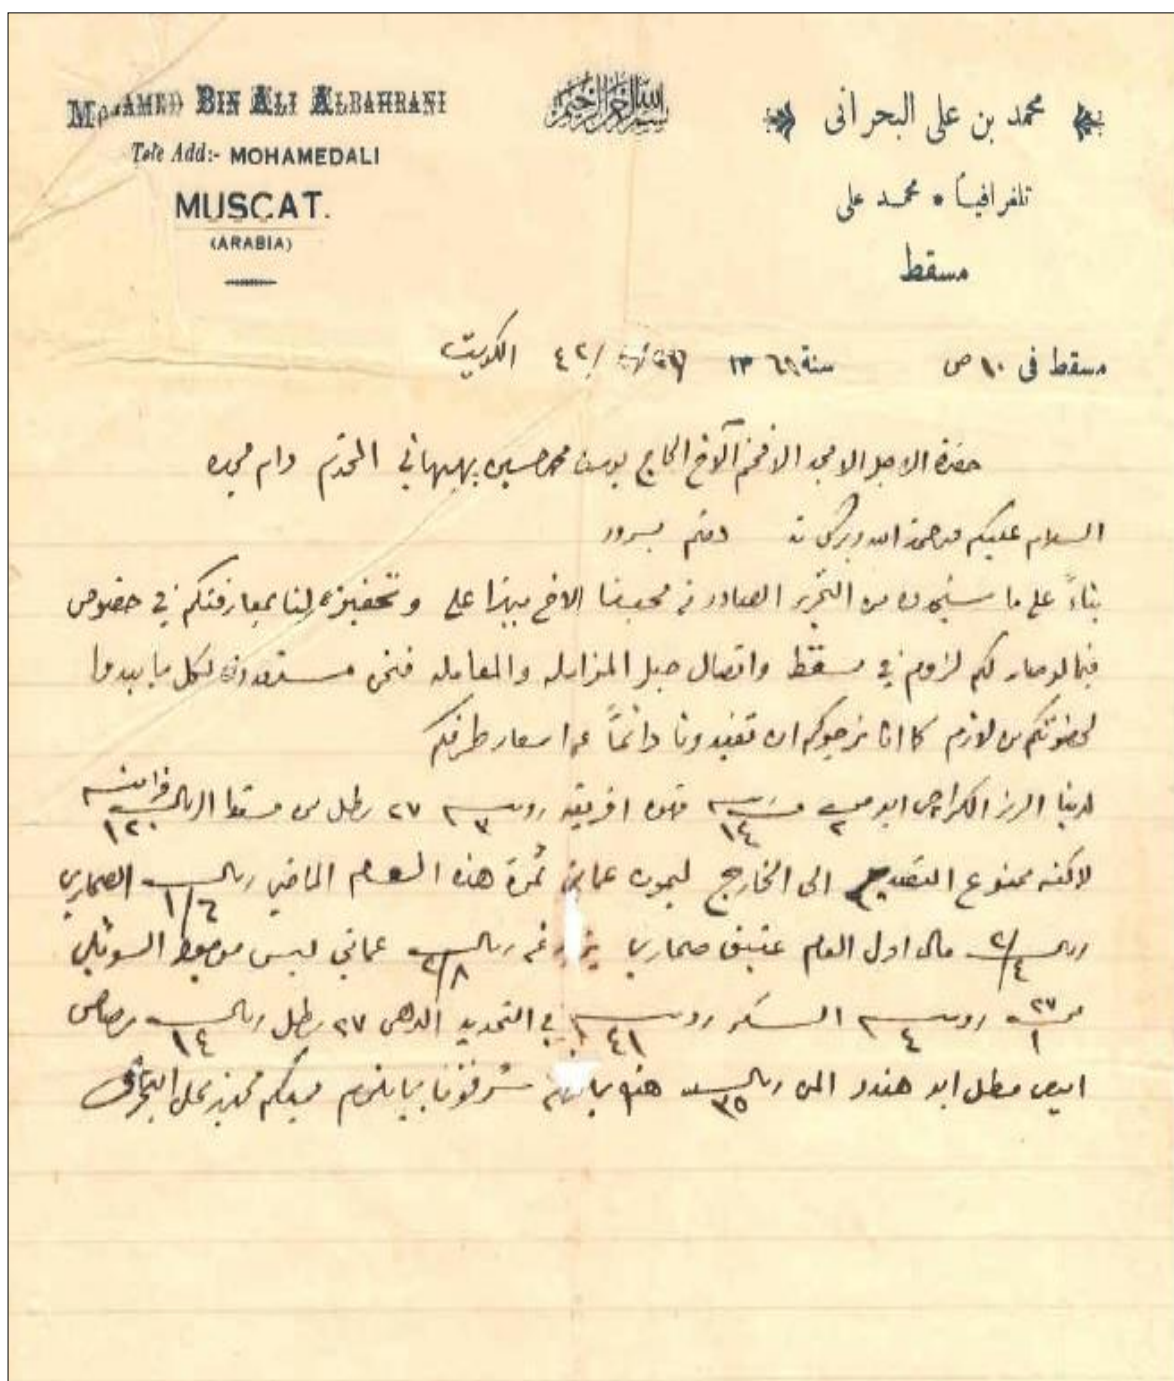 MOHAMED BIN ALI ALBAHRANI
Tele Add:- MOHAMEDALI
MUSCAT.
(ARABIA)
بسم الله الرحمن الرحيم
محمد بن علي البحراني
تلغرافياً • محمد علي
مسقط
مسقط في ١٠ ص سنة ١٣٦١ ٤٢/ الكويت
حضرة الاجل الامجد الافخم الاخ الحاج يوسف محمد حسين بهبهاني المحترم دام مجده
السلام عليكم ورحمة الله وبركاته دمتم بسرور
بناءً على ما ستجدون من التحرير الصادر من محبنا الاخ ميرزا علي وتحفيزه لنا بمعارفتكم في خصوص
فيما لو صار لكم لزوم في مسقط واتصال حبل المراسله والمعامله فنحن مستعدون لكل ما يبدوا
لحضرتكم من لازم كما اننا نرجوكم ان تفيدونا دائماً عن اسعار طرفكم
لدينا الرز الكراچي ابو ٢ ١٤ قهوه افريقيه روبيه ٣ ٢٧ رطل من مسقط الريال فرانسه ١٢٠
لاكنه ممنوع التصدير الى الخارج ليمون عماني ثمرة هذه العام الماضي ريال ١/٦ الصحاري
ريال ٢/٤ مال اول العام عتيق صحاري ريال ٢/٨ عماني ليس موجود السوتلي
٢٧ ١ روبيه ٤ السكر روبيه ٤١ في التحديد الدهن ٢٧ رطل ريال ١٤ رصاص
ابيض مطل ابو هندر المن ريال ٣٥ هذا شرفونا بما يلزم